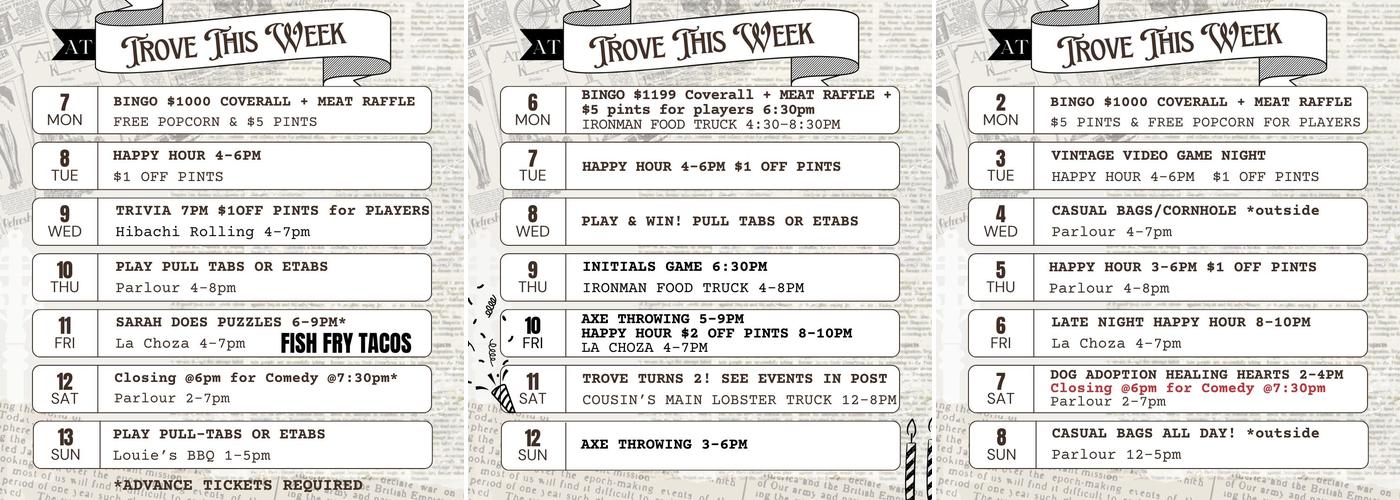 AT TROVE THIS WEEK
7 MON
BINGO $1000 COVERALL + MEAT RAFFLE
FREE POPCORN & $5 PINTS
8 TUE
HAPPY HOUR 4-6PM
$1 OFF PINTS
9 WED
TRIVIA 7PM $1OFF PINTS for PLAYERS
Hibachi Rolling 4-7pm
10 THU
PLAY PULL TABS OR ETABS
Parlour 4-8pm
11 FRI
SARAH DOES PUZZLES 6-9PM*
La Choza 4-7pm FISH FRY TACOS
12 SAT
Closing @6pm for Comedy @7:30pm*
Parlour 2-7pm
13 SUN
PLAY PULL-TABS OR ETABS
Louie's BBQ 1-5pm
*ADVANCE TICKETS REQUIRED
AT TROVE THIS WEEK
6 MON
BINGO $1199 Coverall + MEAT RAFFLE +
$5 pints for players 6:30pm
IRONMAN FOOD TRUCK 4:30-8:30PM
7 TUE
HAPPY HOUR 4-6PM $1 OFF PINTS
8 WED
PLAY & WIN! PULL TABS OR ETABS
9 THU
INITIALS GAME 6:30PM
IRONMAN FOOD TRUCK 4-8PM
10 FRI
AXE THROWING 5-9PM
HAPPY HOUR $2 OFF PINTS 8-10PM
LA CHOZA 4-7PM
11 SAT
TROVE TURNS 2! SEE EVENTS IN POST
COUSIN'S MAIN LOBSTER TRUCK 12-8PM
12 SUN
AXE THROWING 3-6PM
AT TROVE THIS WEEK
2 MON
BINGO $1000 COVERALL + MEAT RAFFLE
$5 PINTS & FREE POPCORN FOR PLAYERS
3 TUE
VINTAGE VIDEO GAME NIGHT
HAPPY HOUR 4-6PM $1 OFF PINTS
4 WED
CASUAL BAGS/CORNHOLE *outside
Parlour 4-7pm
5 THU
HAPPY HOUR 3-6PM $1 OFF PINTS
Parlour 4-8pm
6 FRI
LATE NIGHT HAPPY HOUR 8-10PM
La Choza 4-7pm
7 SAT
DOG ADOPTION HEALING HEARTS 2-4PM
Closing @6pm for Comedy @7:30pm
Parlour 2-7pm
8 SUN
CASUAL BAGS ALL DAY! *outside
Parlour 12-5pm